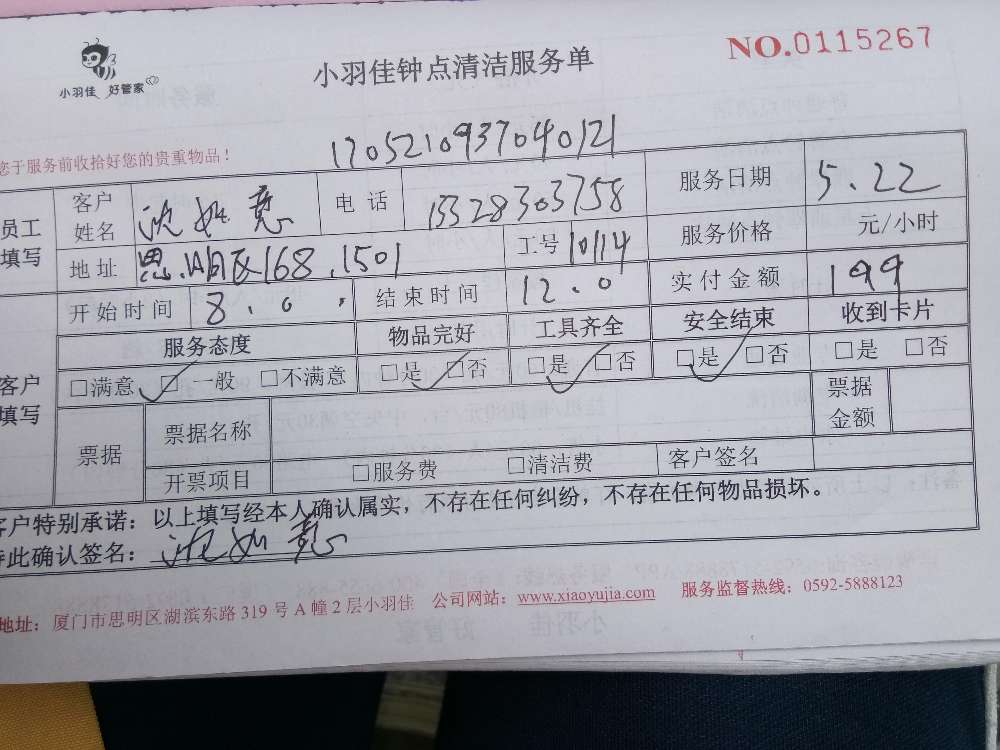 小羽佳 好管家
小羽佳钟点清洁服务单
NO.0115267
您于服务前收拾好您的贵重物品！
1705210937040121
员工填写
客户姓名 沈 电话 15328303758 服务日期 5.22
地址 思明区168.1501 工号 10114 服务价格 元/小时
开始时间 8.0 结束时间 12.0 实付金额 199
客户填写
服务态度 物品完好 工具齐全 安全结束 收到卡片
□满意 ✓□一般 □不满意 □是✓□否 □是✓□否 □是✓□否 □是 □否
票据 票据名称 票据金额
开票项目 □服务费 □清洁费 客户签名
客户特别承诺：以上填写经本人确认属实，不存在任何纠纷，不存在任何物品损坏。
特此确认签名：沈
地址：厦门市思明区湖滨东路319号A幢2层小羽佳 公司网站：www.xiaoyujia.com 服务监督热线：0592-5888123